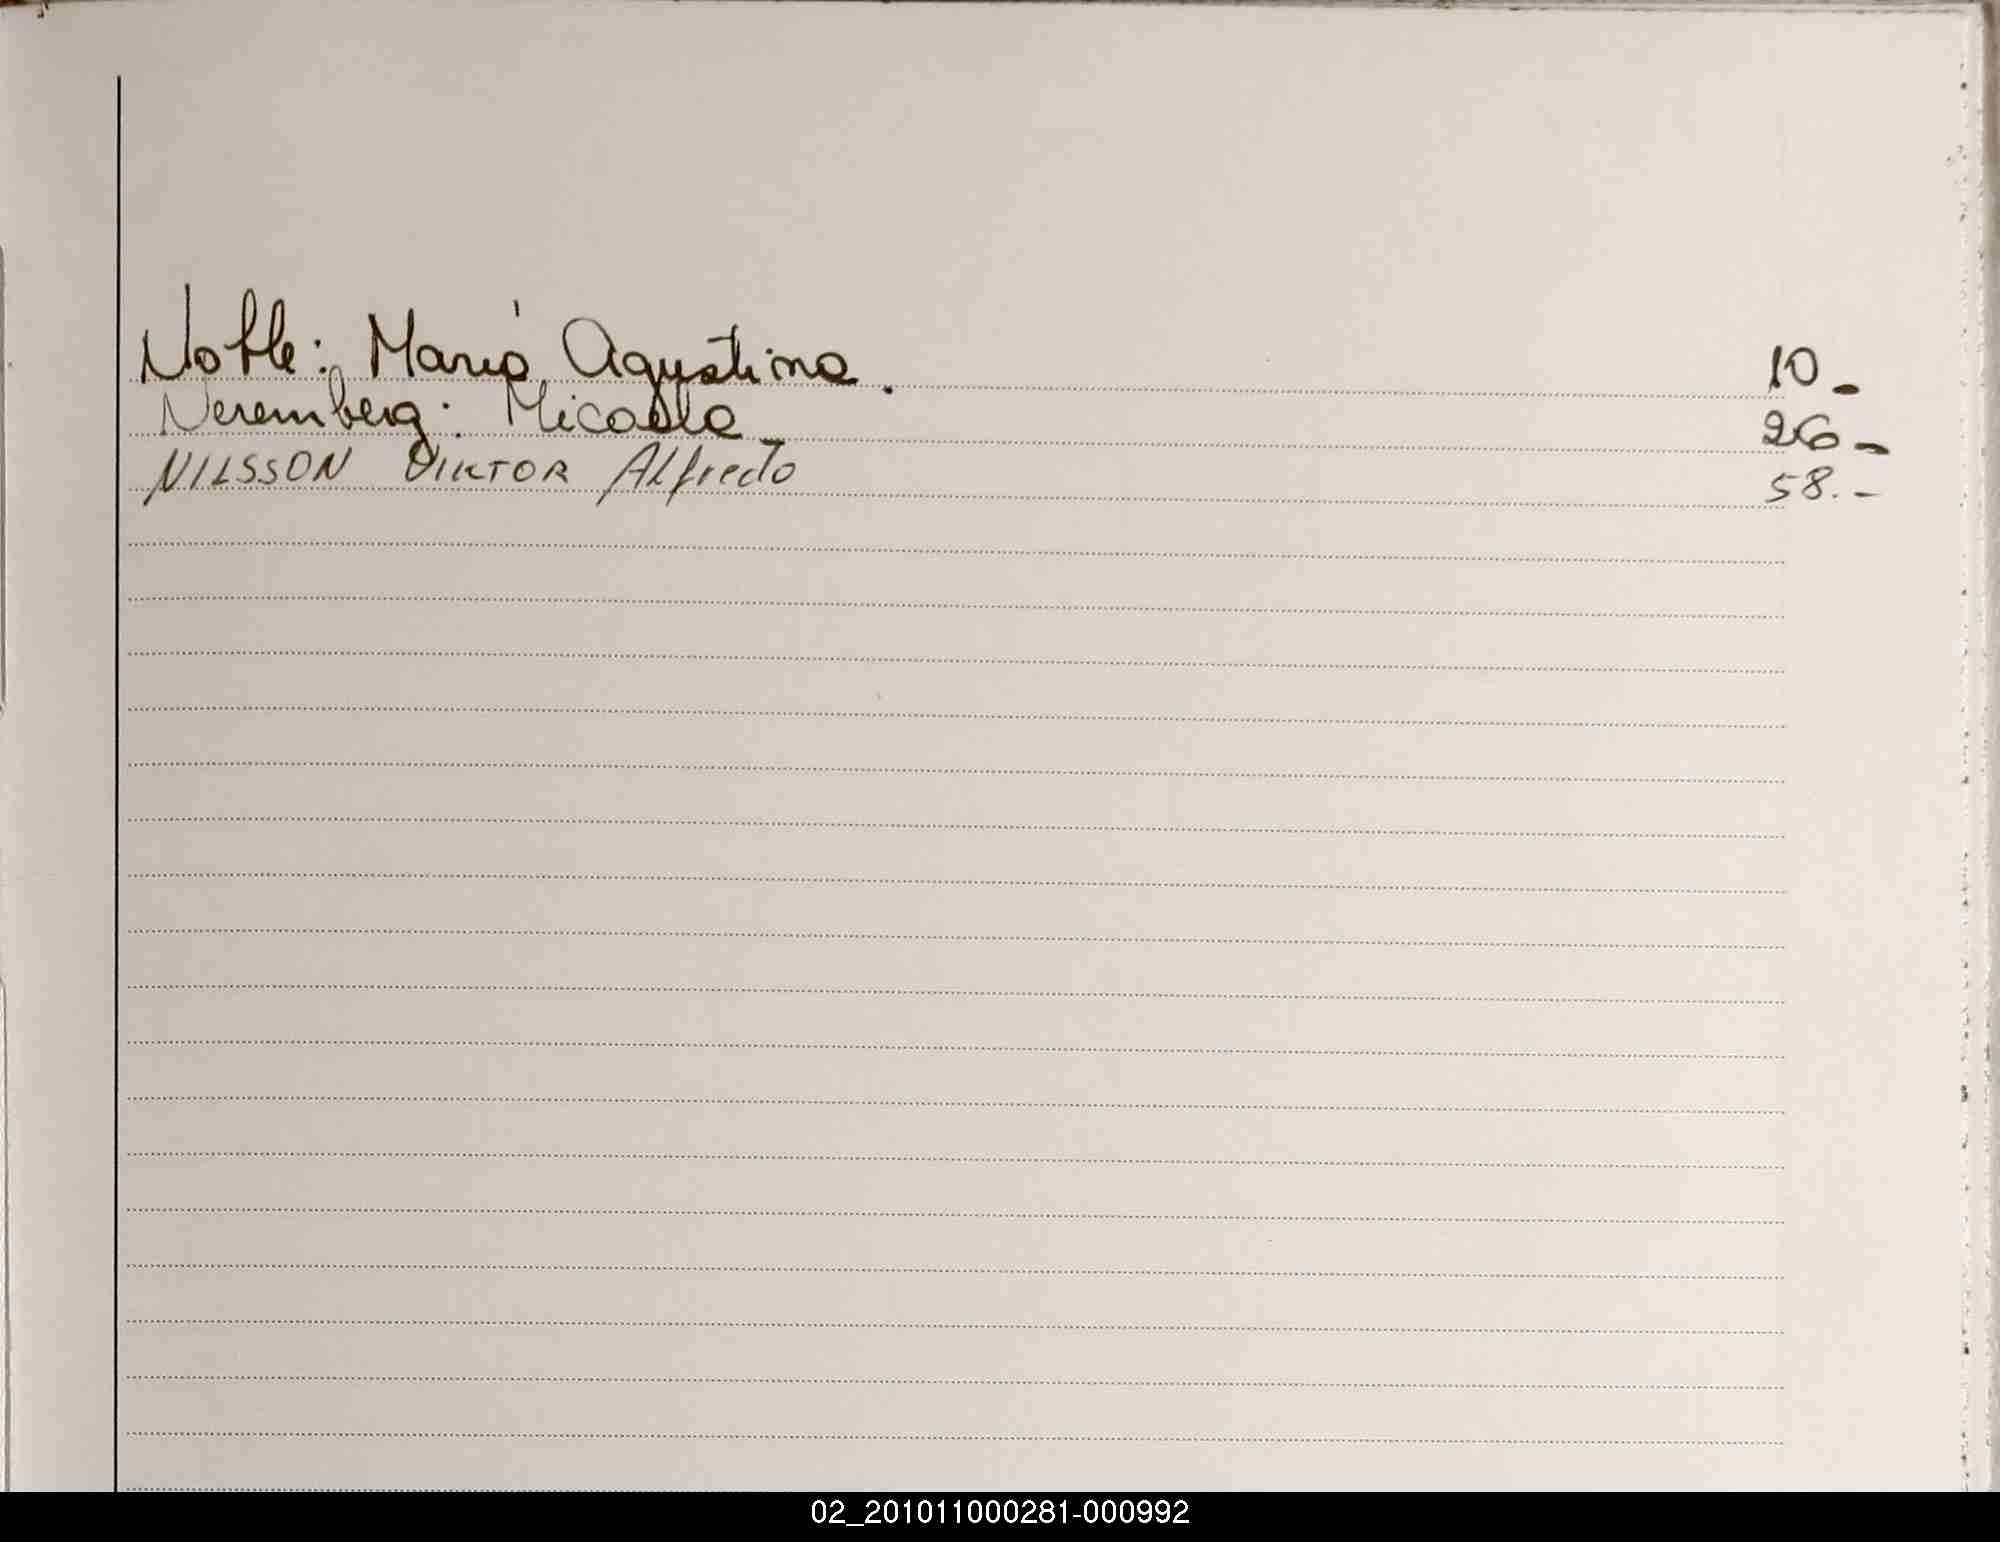 Noble: María Agustina. 10-
Neremberg: Micaela 26-
NILSSON VIKTOR Alfredo 58.-
02_201011000281-000992